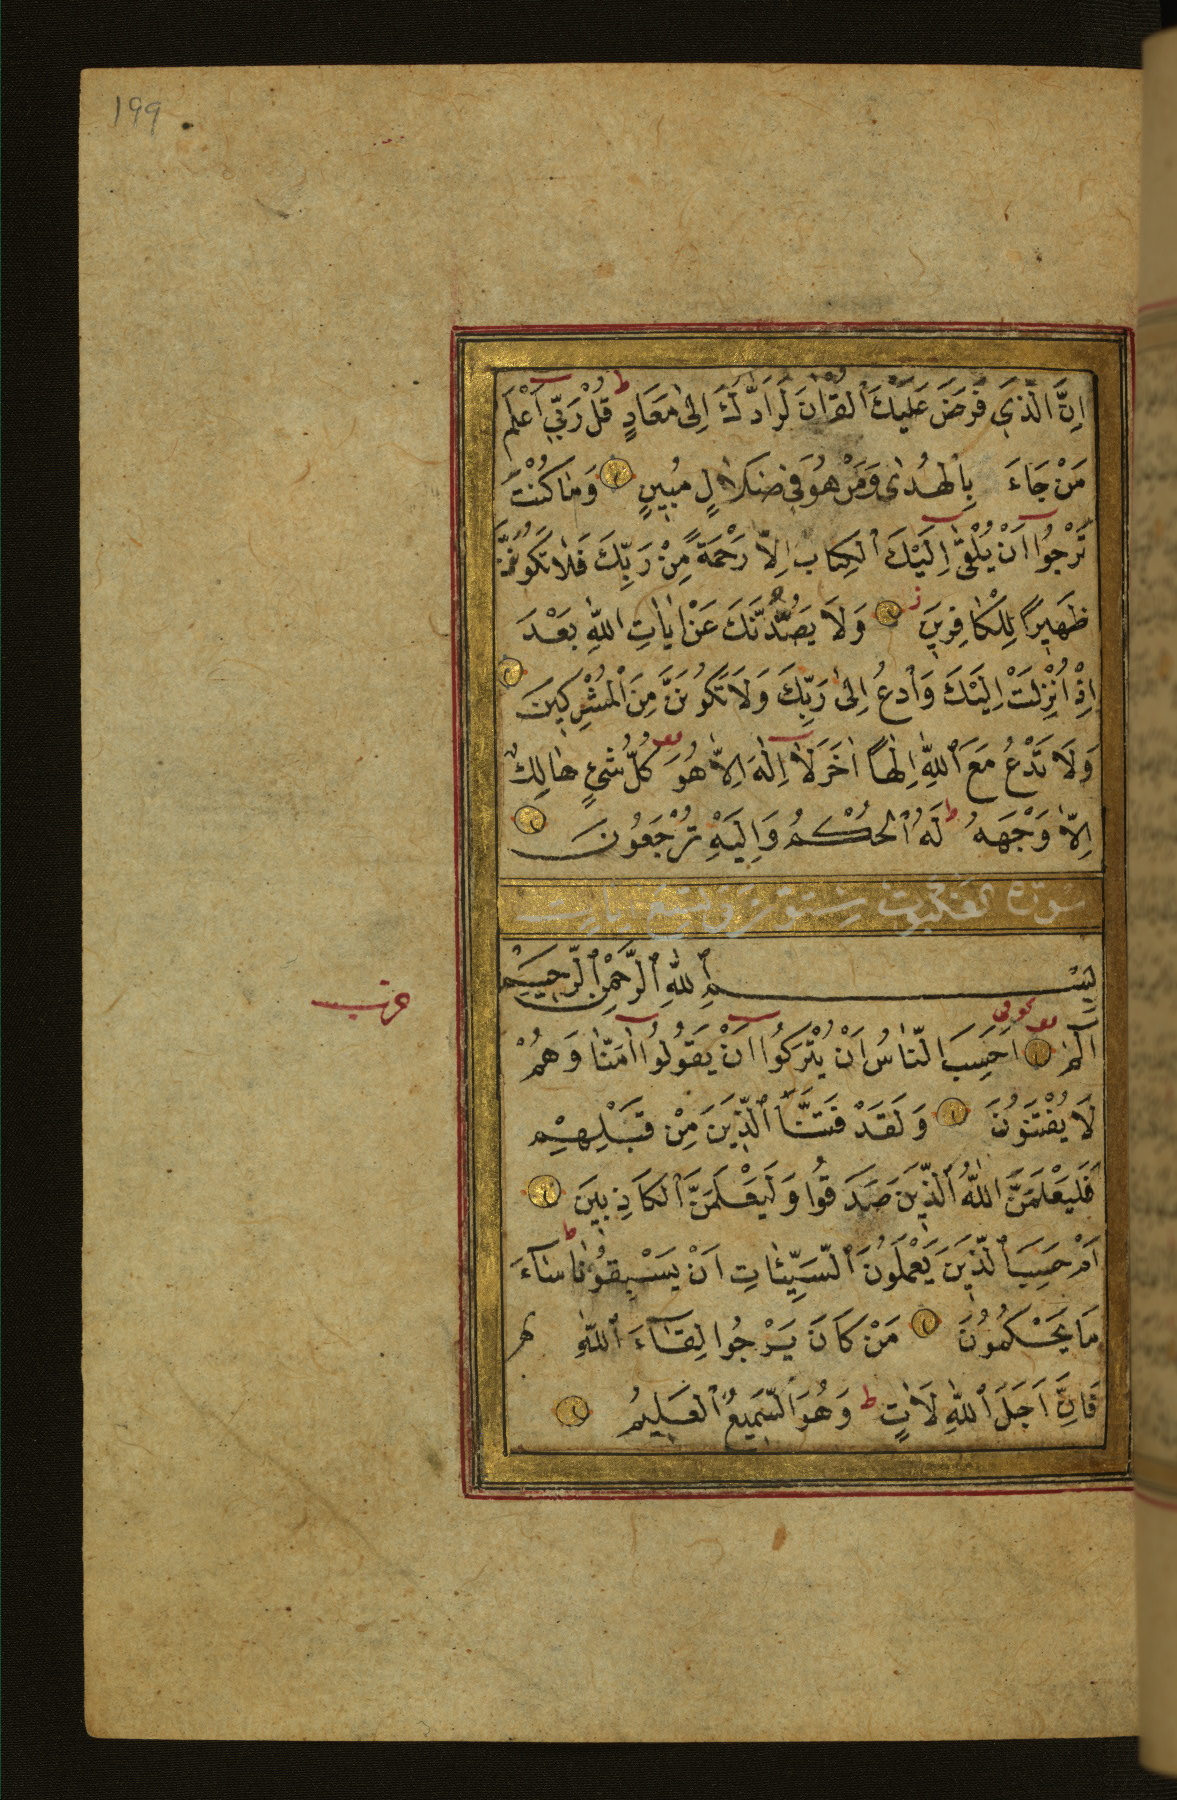 199
اِنَّ الَّذٖي فَرَضَ عَلَيْكَ ٱلْقُرْاٰنَ لَرَادُّكَ اِلىٰ مَعَادٍ ط قُلْ رَبّٖي اَعْلَمُ
مَنْ جَاءَ بِالْهُدٰى وَمَنْ هُوَ فٖي ضَلَالٍ مُبٖينٍ وَمٰا كُنْتَ
تَرْجُوا اَنْ يُلْقىٰ اِلَيْكَ ٱلْكِتَابُ اِلَّا رَحْمَةً مِنْ رَبِّكَ فَلٰا تَكُونَنَّ
ظَهٖيرًا لِلْكٰافِرٖينَ ز وَلَا يَصُدُّنَّكَ عَنْ اٰيَاتِ اللّٰهِ بَعْدَ
اِذْ اُنْزِلَتْ اِلَيْكَ وَٱدْعُ اِلىٰ رَبِّكَ وَلَا تَكُونَنَّ مِنَ ٱلْمُشْرِكٖينَ
وَلَا تَدْعُ مَعَ ٱللّٰهِ اِلٰهًا اٰخَرَ لَا اِلٰهَ اِلَّا هُوَ كُلُّ شَيْءٍ هٰالِكٌ
اِلَّا وَجْهَهُ ط لَهُ ٱلْحُكْمُ وَاِلَيْهِ تُرْجَعُونَ
سورة العنكبوت
بِسْمِ ٱللّٰهِ ٱلرَّحْمٰنِ ٱلرَّحٖيمِ
حزب
الٓمٓ اَحَسِبَ النّٰاسُ اَنْ يُتْرَكُوا اَنْ يَقُولُوا اٰمَنّٰا وَهُمْ
لَا يُفْتَنُونَ وَلَقَدْ فَتَنَّا ٱلَّذٖينَ مِنْ قَبْلِهِمْ
فَلَيَعْلَمَنَّ اللّٰهُ ٱلَّذٖينَ صَدَقُوا وَلَيَعْلَمَنَّ ٱلْكَاذِبٖينَ
اَمْ حَسِبَ ٱلَّذٖينَ يَعْمَلُونَ ٱلسَّيِّئٰاتِ اَنْ يَسْبِقُونٰا ط سٰآءَ
مَا يَحْكُمُونَ مَنْ كَانَ يَرْجُوا لِقَآءَ ٱللّٰهِ
فَاِنَّ اَجَلَ ٱللّٰهِ لَاٰتٍ ط وَهُوَ ٱلسَّمٖيعُ ٱلْعَلٖيمُ